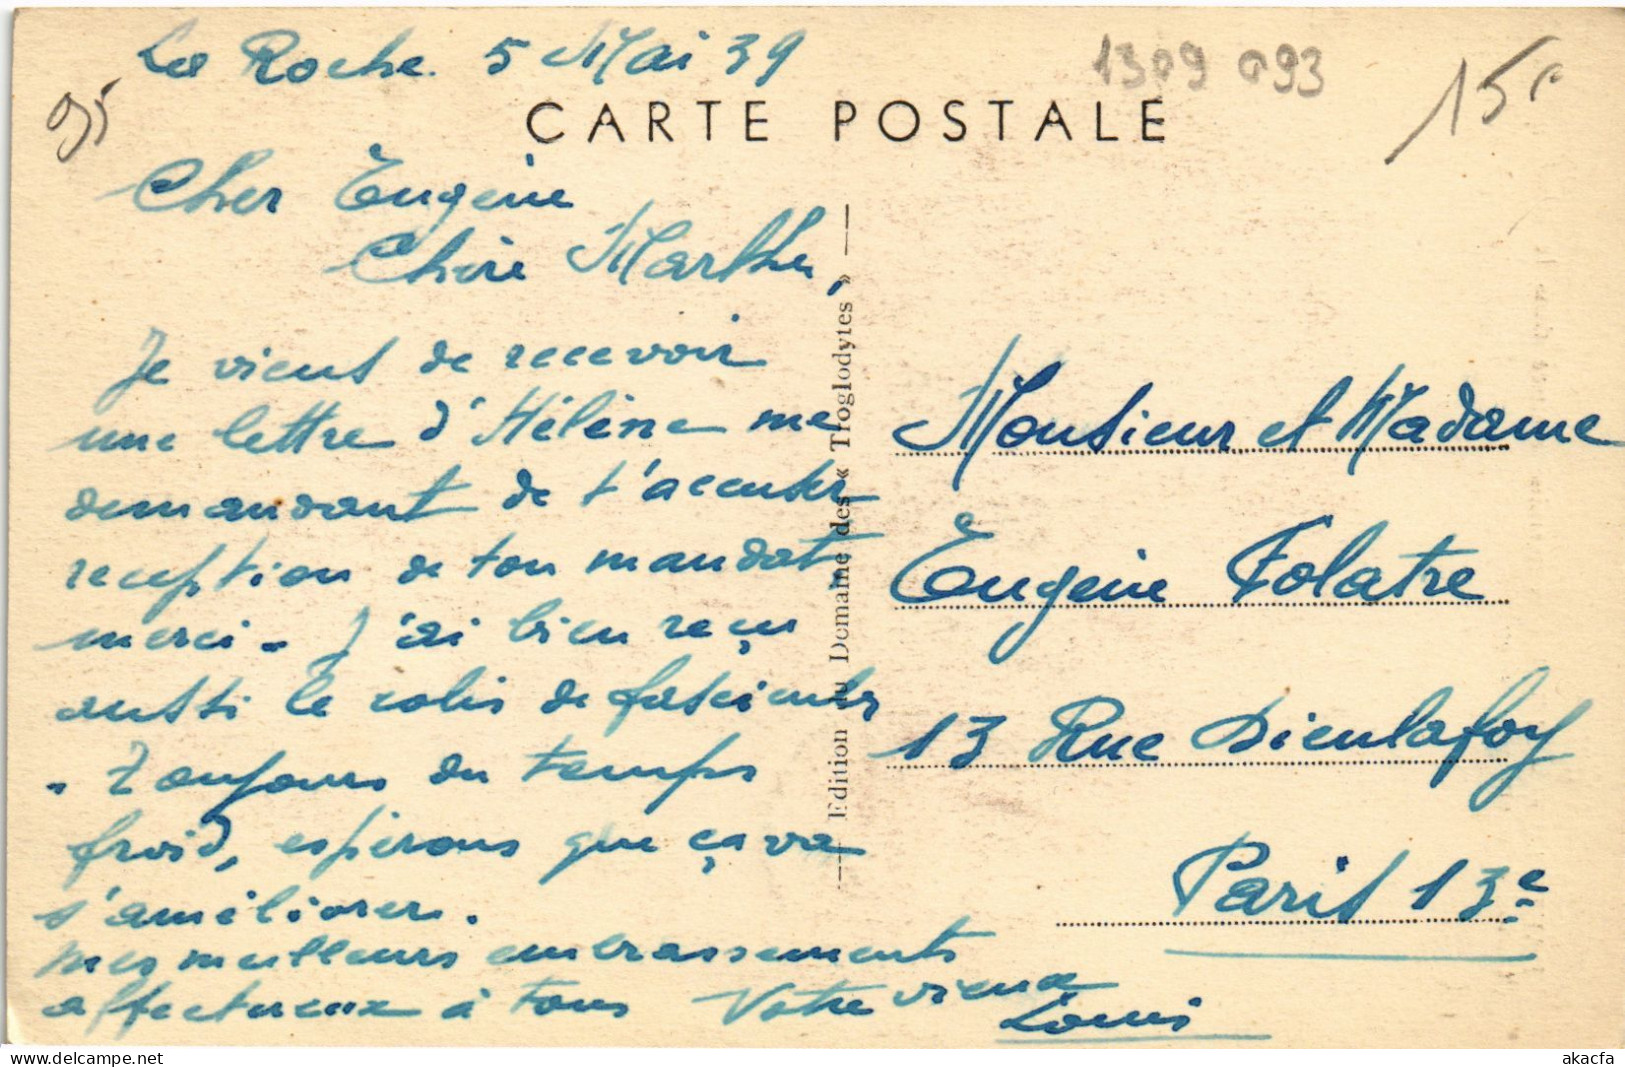 La Roche. 5 Mai 39
1309 093
15
95
CARTE POSTALE
Cher Eugène
Chère Marthe,
Je viens de recevoir
une lettre d'Hélène me
demandant de t'accuser
reception de ton mandat
merci. J'ai bien reçu
aussi le colis de fascicules
. Toujours du temps
froid, espérons que ça va
s'améliorer.
Mes meilleurs embrassements
affectueux à tous Votre vieux
Louis
Edition du Domaine des « Troglodytes »
Monsieur et Madame
Eugène Folatre
13 Rue Dieulafoy
Paris 13e
www.delcampe.net
akacfa